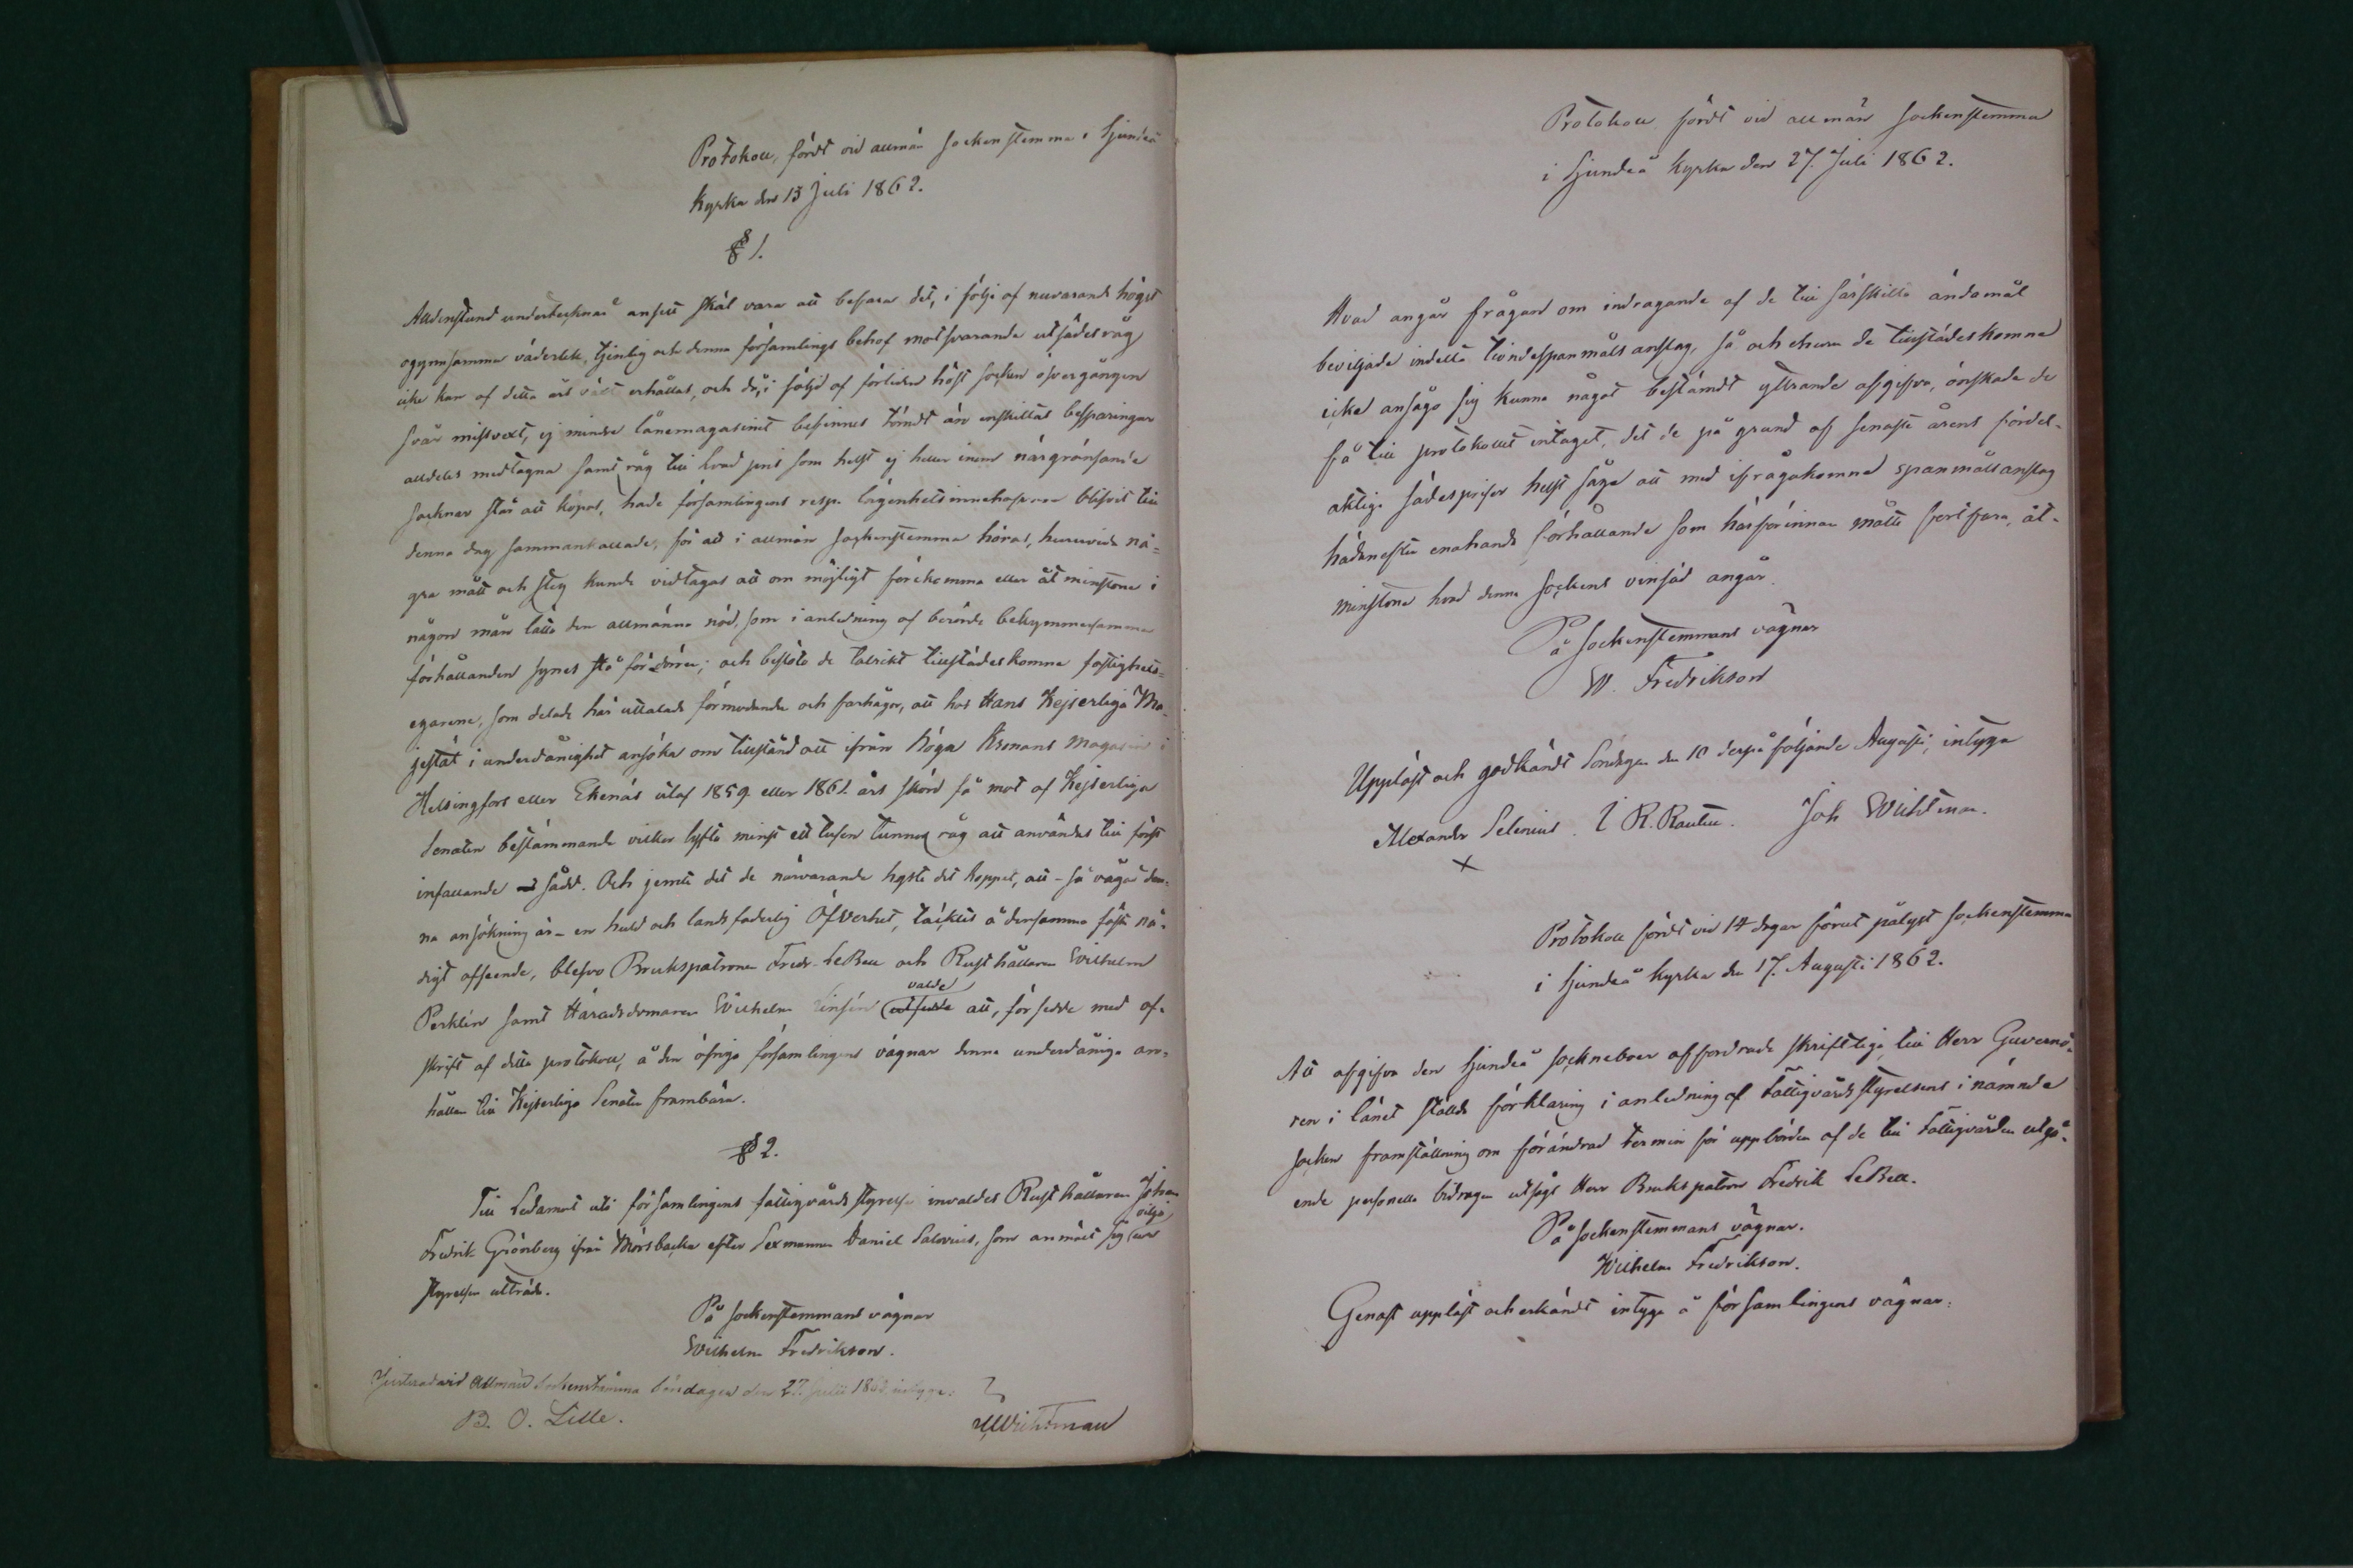 Protokoll, fördt vid allmän sockenstemma i Sjundeå
Kyrka den 13 Juli 1862.
§ 1.
Alldenstund undertecknad ansett skäl vara att befara det, i följe af nuvarande högst
ogynsamma väderlek, tjenlig och denna församlings behof motsvarande utsädesråg
icke kan af detta års växt erhållas, och då, i följd af förliden höst socken öfvergången
svår missvext, ej mindre lånemagasinet befinnes tömdt än enskiltas besparingar
alldeles medtagna samt råg till hvad pris som helst ej heller inom närgränsande
socknar står att köpas, hade församlingens resp. lägenhetsinnehafvare blifvit till
denna dag sammankallade, för att i allmän sockenstemma höras, huruvida nå-
gra mått och steg kunde vidtagas att om möjligt förekomma eller åtminstone i
någon mån lätta den allmänna nöd, som i anledning af berörde bekymmersamma
förhållanden synes stå för dörren; och beslöto de talrikt tillstädeskomne fastighets-
egarene, som delade här uttalade förmodande och farhågor, att hos Hans Kejserliga Ma-
jestät i underdånighet ansöka om tillstånd att ifrån höga Kronans magasin i
Helsingfors eller Ekenäs utaf 1859 eller 1861 års skörd få mot af Kejserliga
Senaten bestämmande vilkor lyfta minst ett tusen tunnor råg att användas till först
infallande sådd. Och jemte det de närvarande hyste det hoppet, att - så vågad den-
na ansökning är - en huld och landsfaderlig Öfverhet, täcktes å densamma fästa nå-
digt afseende, blefvo Brukspatronen Fredr. LeBell och Rusthållaren Wilhelm
Perklén samt Häradsdomaren Wilhelm Linsén valde att, försedde med af-
skrift af detta protokoll, å den öfriga församlingens vägnar denna underdåniga an-
hållan till Kejserliga Senaten frambära.
§ 2.
Till Ledamot uti församlingens fattigvårdsstyrelse invaldes Rusthållaren Johan
Fredrik Grönberg ifrån Mörsbacka efter Sexmannen Daniel Salovius, som anmält sig vilja ur
styrelsen utträda.
På sockenstemmans vägnar
Wilhelm Fredrikson.
Justerad vid Allmän Sockenstämma Söndagen den 27. Julii 1862, intyga:
B. O. Lille.
Wichtman
Protokoll fördt vid allmän sockenstemma
i Sjundeå Kyrka den 27. Juli 1862.
Hvad angår frågan om indragande af de till särskilta ändamål
beviljade indelta tiondespanmåls anslag, så och ehuru de tillstädeskomne
icke ansågo sig kunna något bestämdt yttrande afgifva, önskade de
få till protokollet intaget, det de på grund af senaste årens fördel-
aktiga sädespriser helst såge att med ifrågakomna spanmålsanslag
hädanefter enahanda förhållande som härförinnan måtte fortfara, åt-
minstone hvad denna sockens vinsäd angår.
På sockenstemmans vägnar
W. Fredrikson
Uppläst och godkändt Söndagen den 10 derpåföljande Augusti, intyga
Alexander Selenius. R. Rautell. Joh Wichtman.
Protokoll fördt vid 14 dagar förut pålyst sockenstemma
i Sjundeå kyrka den 17. Augusti 1862.
Att afgifva den Sjundeå sockneboer affordrade skriftliga till Herr Guvernö-
ren i länet ställda förklaring i anledning af Fattigvårdsstyrelsens i nämnde
socken framställning om förändrad termin för uppbörden af de till Fattigvården utgå-
ende personella bidragen utsågs Herr Brukspatron Fredrik LeBell.
På sockenstemmans vägnar.
Wilhelm Fredrikson.
Genast uppläst och erkändt intyga å församlingens vägnar: